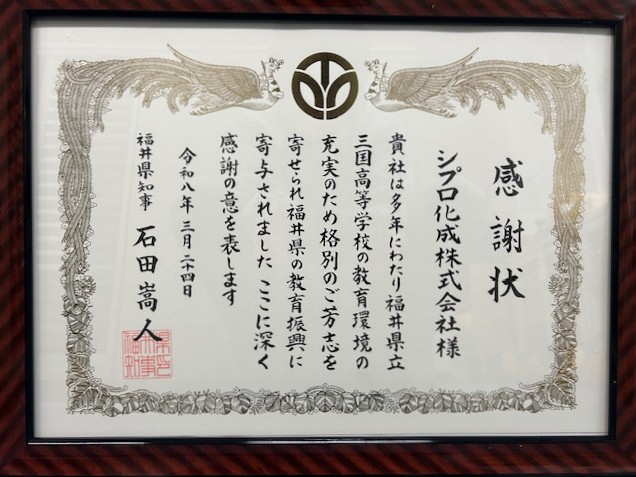 感謝状
シプロ化成株式会社様
貴社は多年にわたり福井県立
三国高等学校の教育環境の
充実のため格別のご芳志を
寄せられ福井県の教育振興に
寄与されました ここに深く
感謝の意を表します
令和八年三月二十四日
福井県知事 石田嵩人